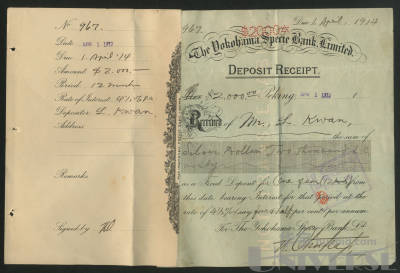 No. 967.
Date APR 1 1913
Due 1. April '14
Amount $2.000
Period 12 months
Rate of Interest 4½% p.a.
Depositor L. Kwan
Address
Remarks
Signed by
967. $2000 Due 1. April, 1914
The Yokohama Specie Bank, Limited.
DEPOSIT RECEIPT.
$2,000.00 Peking, APR 1 1913 1
Received of Mr. L. Kwan,
the sum of
Silver Dollars Two thousand
only
as a Fixed Deposit for One year from
this date bearing Interest for that period at the
rate of 4½% (say four & half) per cent per annum.
For The Yokohama Specie Bank, Ld.
UNIVERSE